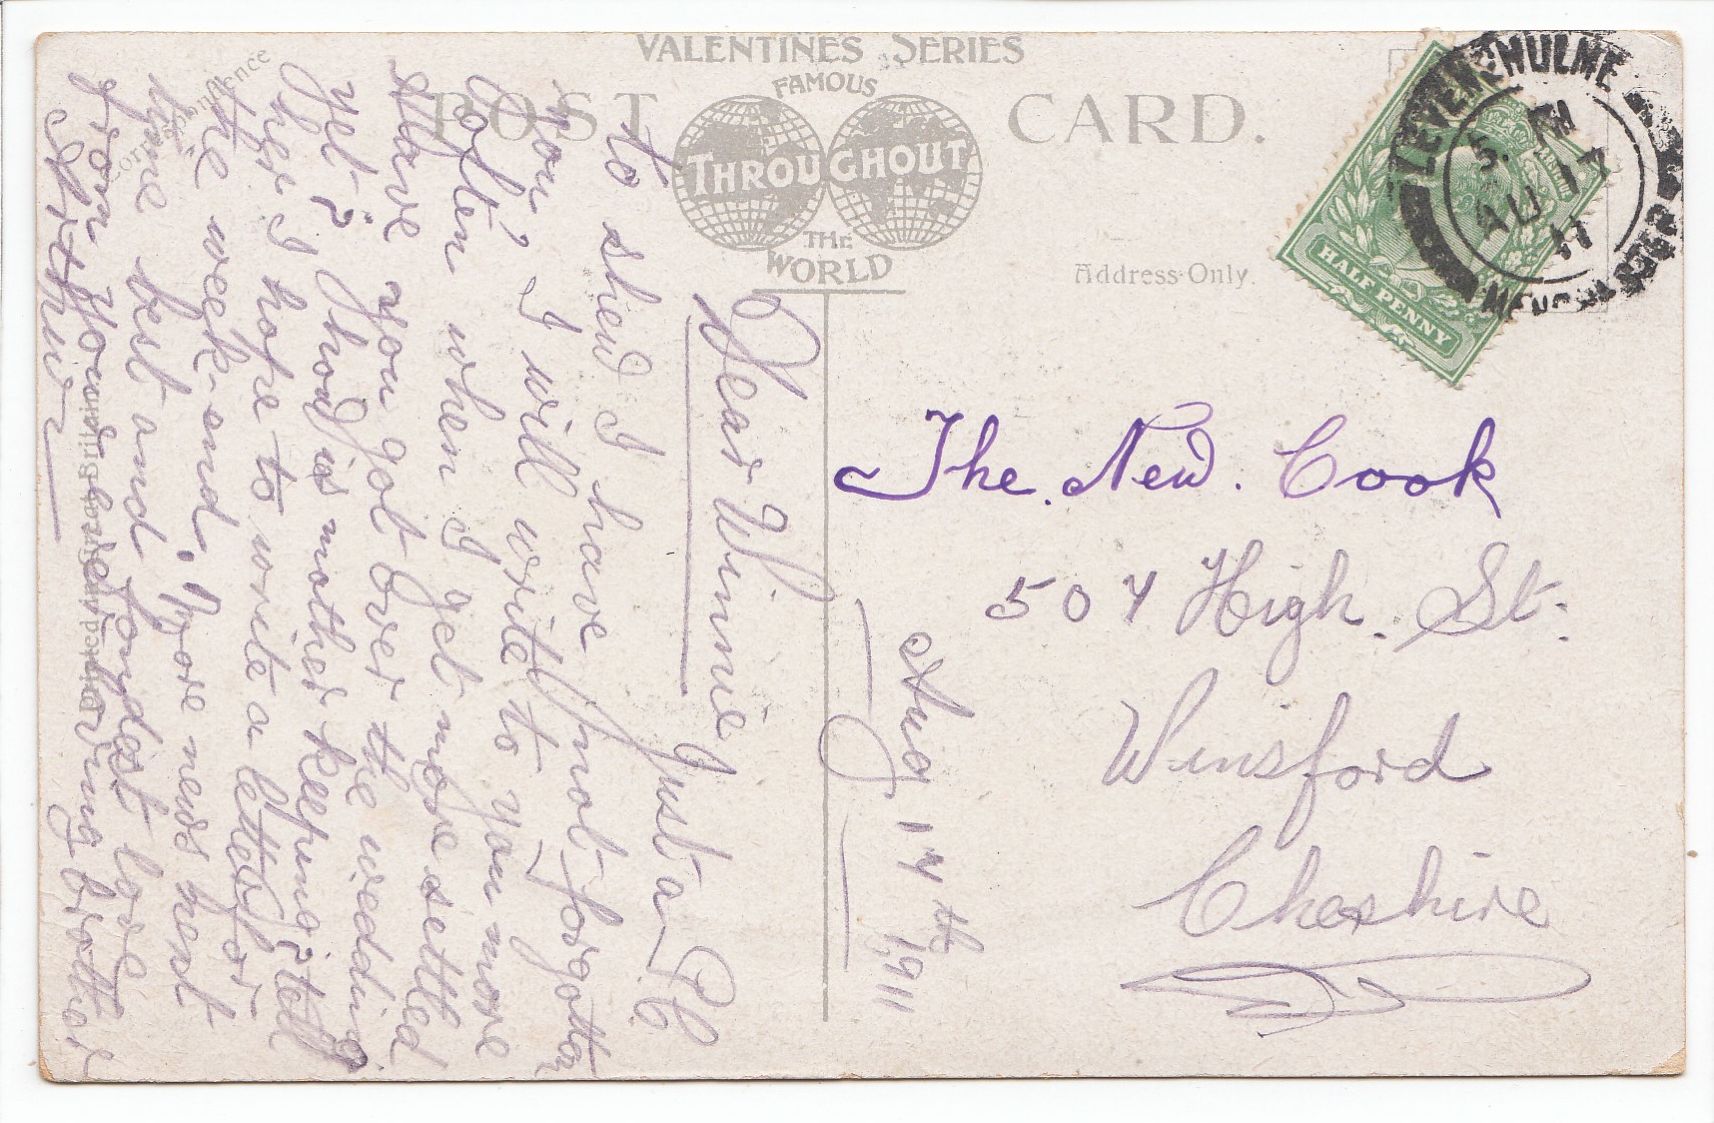 VALENTINES SERIES
FAMOUS
POST CARD.
THROUGHOUT
THE
WORLD
Correspondence
Address Only
Printed in Great Britain
HALF PENNY
LEVENSHULME
5. PM
AU 17
11
The New Cook
507 High St.
Winsford
Cheshire
Aug 17th 1911
Dear Winnie
Just a P.C
to shew I have not forgotton
you, I will write to you more
often when I get more settled
Have you got over the wedding
yet? How is mother keeping? tell
her I hope to write a letter for
the week-end. More news next
time best and fondest love
from your loving brother
Arthur